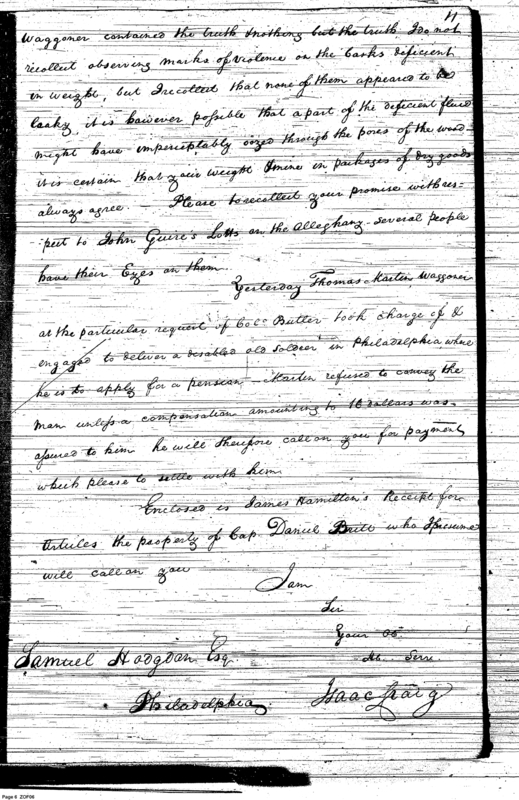 11
Waggoner contained the truth & nothing but the truth I do not
recollect observing marks of violence on the Casks deficient
in weight, but I recollect that none of them appeared to be
leaky, it is however possible that a part of the deficient fluid
might have imperceptably oozed through the pores of the wood
it is certain that your weight & mine in packages of dry goods
always agree. Please to recollect your promise with res=
pect to John Guire's Lotts on the Alleghany - several people
have their Eyes on them.
Yesterday Thomas Martin Waggoner
at the particular request of Col. Butler took charge of &
engaged to deliver a disabled old soldier in Philadelphia where
he is to apply for a pension - Martin refused to convey the
man unless a compensation amounting to 16 dollars was
assured to him he will therefore call on you for payment
which please to settle with him.
Enclosed is James Hamilton's Receipt for
Articles the property of Cap. Daniel Britt who I presume
will call on you
I am
Sir
Your Ob.
H. Serv.
Samuel Hodgdon Esq.
Philadelphia
Isaac Craig
Page 6 ZOF06